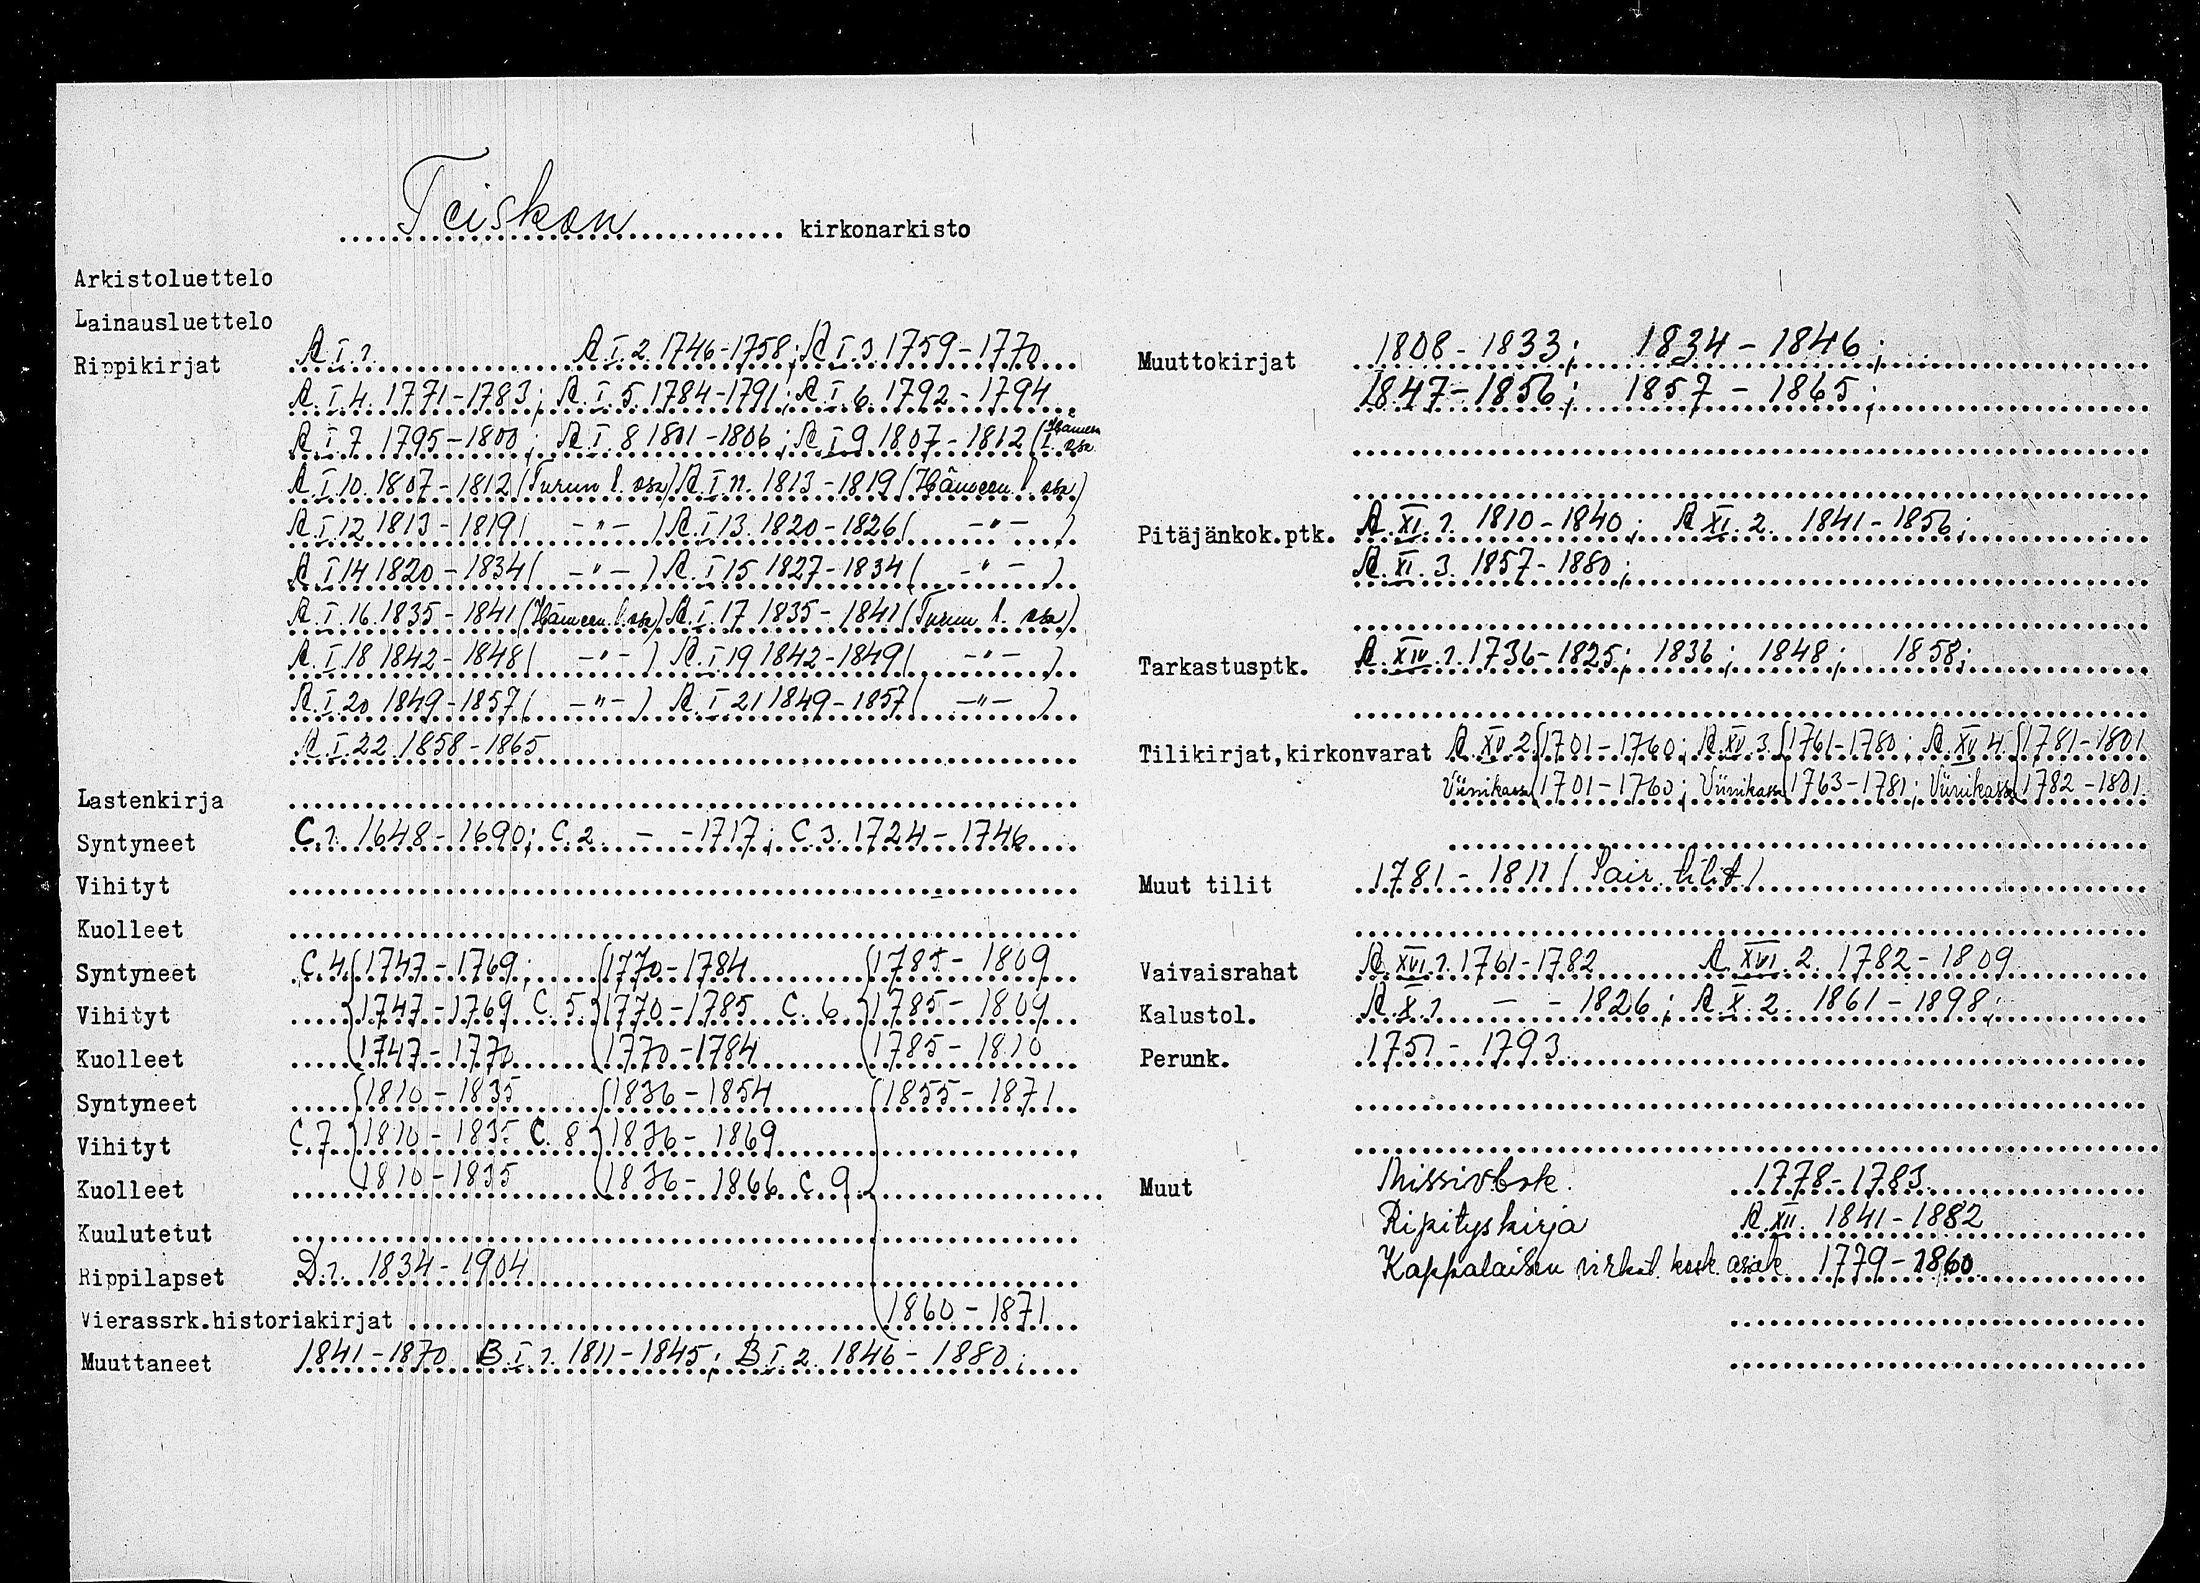 Teiskon kirkonarkisto
Arkistoluettelo
Lainausluettelo
Rippikirjat A.I.1. A.I.2. 1746-1758; A.I.3. 1759-1770
A.I.4. 1771-1783; A.I.5. 1784-1791; A.I.6. 1792-1794
A.I.7 1795-1800; A.I.8 1801-1806; A.I.9 1807-1812 (Hämeen l. osa
A.I.10. 1807-1812 (Turun l. osa) A.I.11. 1813-1819 (Hämeen l. osa)
A.I.12 1813-1819 ( -"- ) A.I.13. 1820-1826 ( -"- )
A.I.14 1820-1834 ( -"- ) A.I.15 1827-1834 ( -"- )
A.I.16. 1835-1841 (Hämeen l. osa) A.I.17 1835-1841 (Turun l. osa)
A.I.18 1842-1848 ( -"- ) A.I.19 1842-1849 ( -"- )
A.I.20 1849-1857 ( -"- ) A.I.21 1849-1857 ( -"- )
A.I.22. 1858-1865
Lastenkirja
Syntyneet C.1. 1648-1690; C.2 - -1717; C.3. 1724-1746
Vihityt
Kuolleet
Syntyneet C.4. 1747-1769; 1770-1784 1785-1809
Vihityt 1747-1769 C.5. 1770-1785 C.6. 1785-1809
Kuolleet 1747-1770 1770-1784 1785-1810
Syntyneet 1810-1835 1836-1854 1855-1871
Vihityt C.7 1810-1835 C.8 1836-1869
Kuolleet 1810-1835 1836-1866 C.9.
Kuulutetut
Rippilapset D.1. 1834-1904
Vierassrk.historiakirjat 1860-1871
Muuttaneet 1841-1870 B.I.1. 1811-1845; B.I.2. 1846-1880;
Muuttokirjat 1808-1833; 1834-1846;
1847-1856; 1857-1865;
Pitäjänkok.ptk. A.XI.1. 1810-1840; A.XI.2. 1841-1856;
A.XI.3. 1857-1880;
Tarkastusptk. A.XIV.1. 1736-1825; 1836; 1848; 1858;
Tilikirjat, kirkonvarat A.XV.2. 1701-1760; A.XV.3. 1761-1780; A.XV.4. 1781-1801
Viinikassa 1701-1760; Viinikassa 1763-1781; Viinikassa 1782-1801.
Muut tilit 1781-1811 (Sair. tilit)
Vaivaisrahat A.XVI.1. 1761-1782 A.XVI.2. 1782-1809
Kalustol. A.X.1 - - 1826; A.X.2. 1861-1898;
Perunk. 1751-1793
Muut Missivbok. 1778-1783
Ripityskirja A.XII. 1841-1882
Kappalaisen virkat. kosk. asiak. 1779-1860